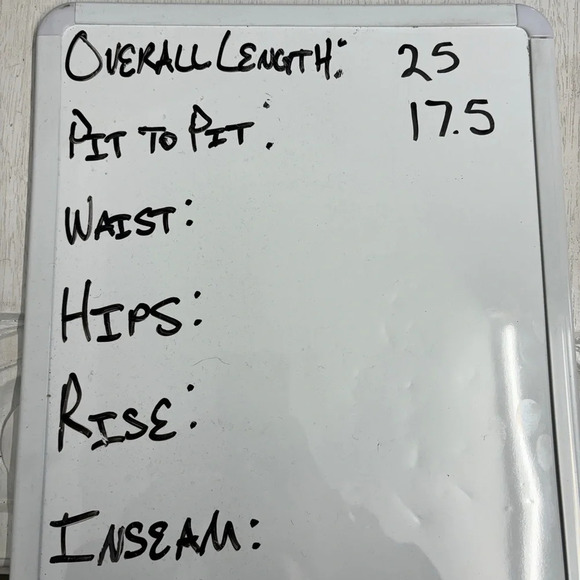 OVERALL LENGTH: 25
PIT TO PIT: 17.5
WAIST:
HIPS:
RISE:
INSEAM: